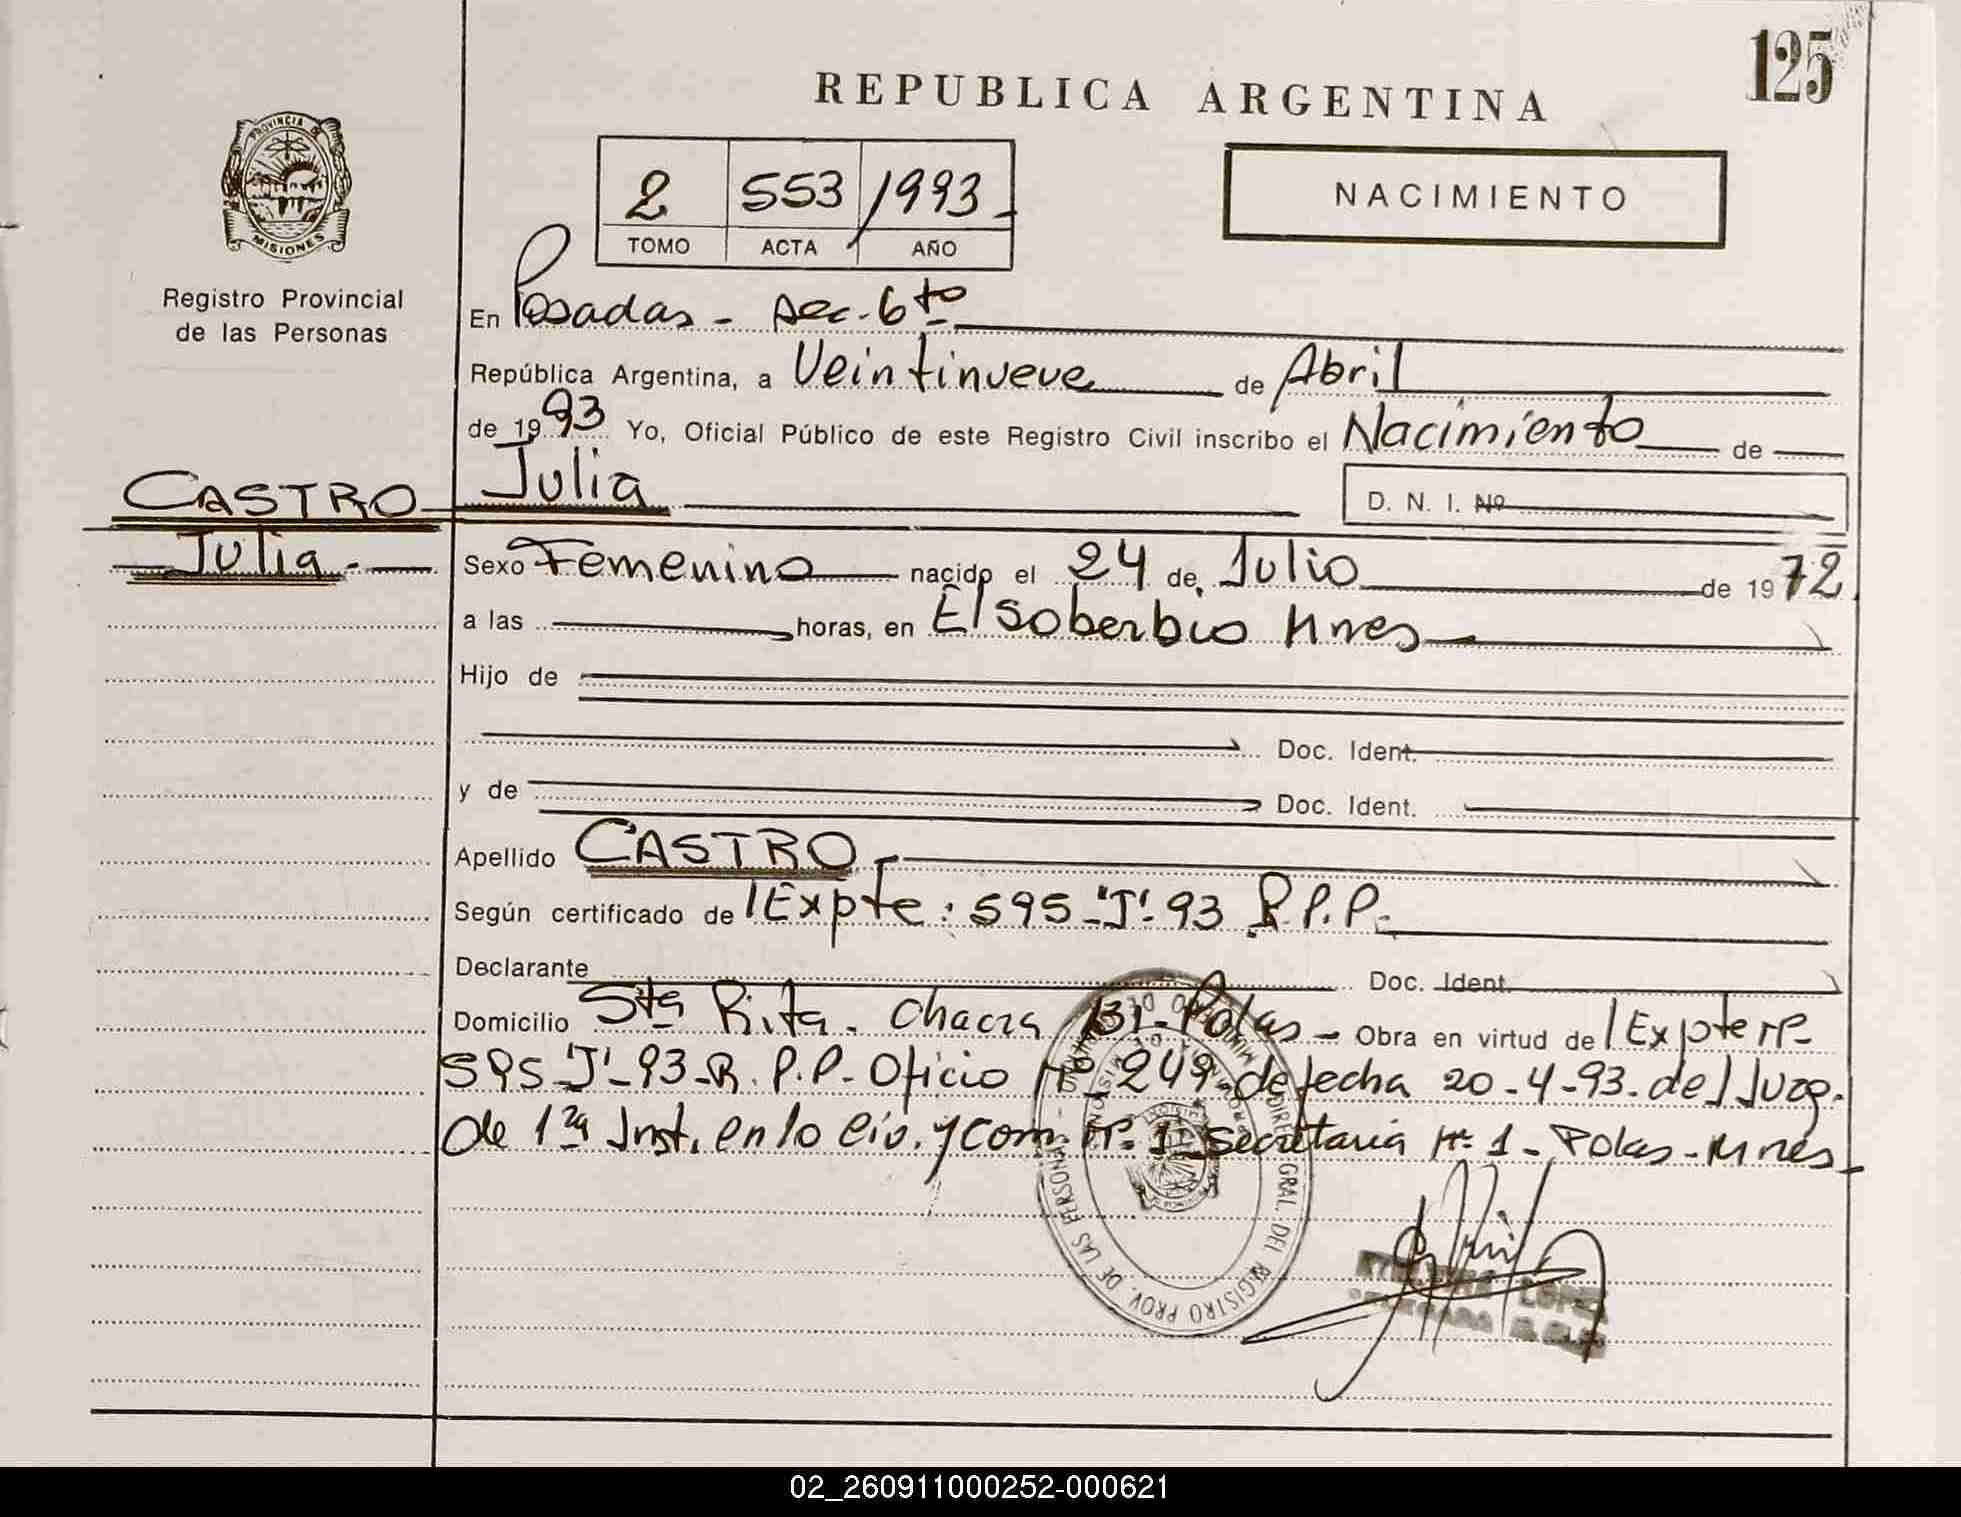 125
REPUBLICA ARGENTINA
PROVINCIA DE
MISIONES
2 553 1993
TOMO ACTA AÑO
NACIMIENTO
Registro Provincial
de las Personas
En Posadas - sec. 6to
República Argentina, a Veintinueve de Abril
de 1993 Yo, Oficial Público de este Registro Civil inscribo el Nacimiento de
CASTRO Julia D. N. I. Nº
Julia.- Sexo Femenino nacido el 24 de Julio de 1972
a las horas, en El soberbio Mnes
Hijo de
Doc. Ident.
y de Doc. Ident.
Apellido CASTRO
Según certificado de Expte: 595-"J"-93 R.P.P.
Declarante Doc. Ident.
Domicilio Sta Rita. Chacra Pdas - Obra en virtud de Expte Nº
595 "J"-93-R.P.P- Oficio Nº 249- de fecha 20-4-93. del Juzg.
de 1ra Inst. en lo civ. y Com. Nº 1 - Secretaria Nº 1 - Pdas - Mnes
GRAL. DEL REGISTRO PROV. DE LAS PERSONAS
LOPEZ
02_260911000252-000621